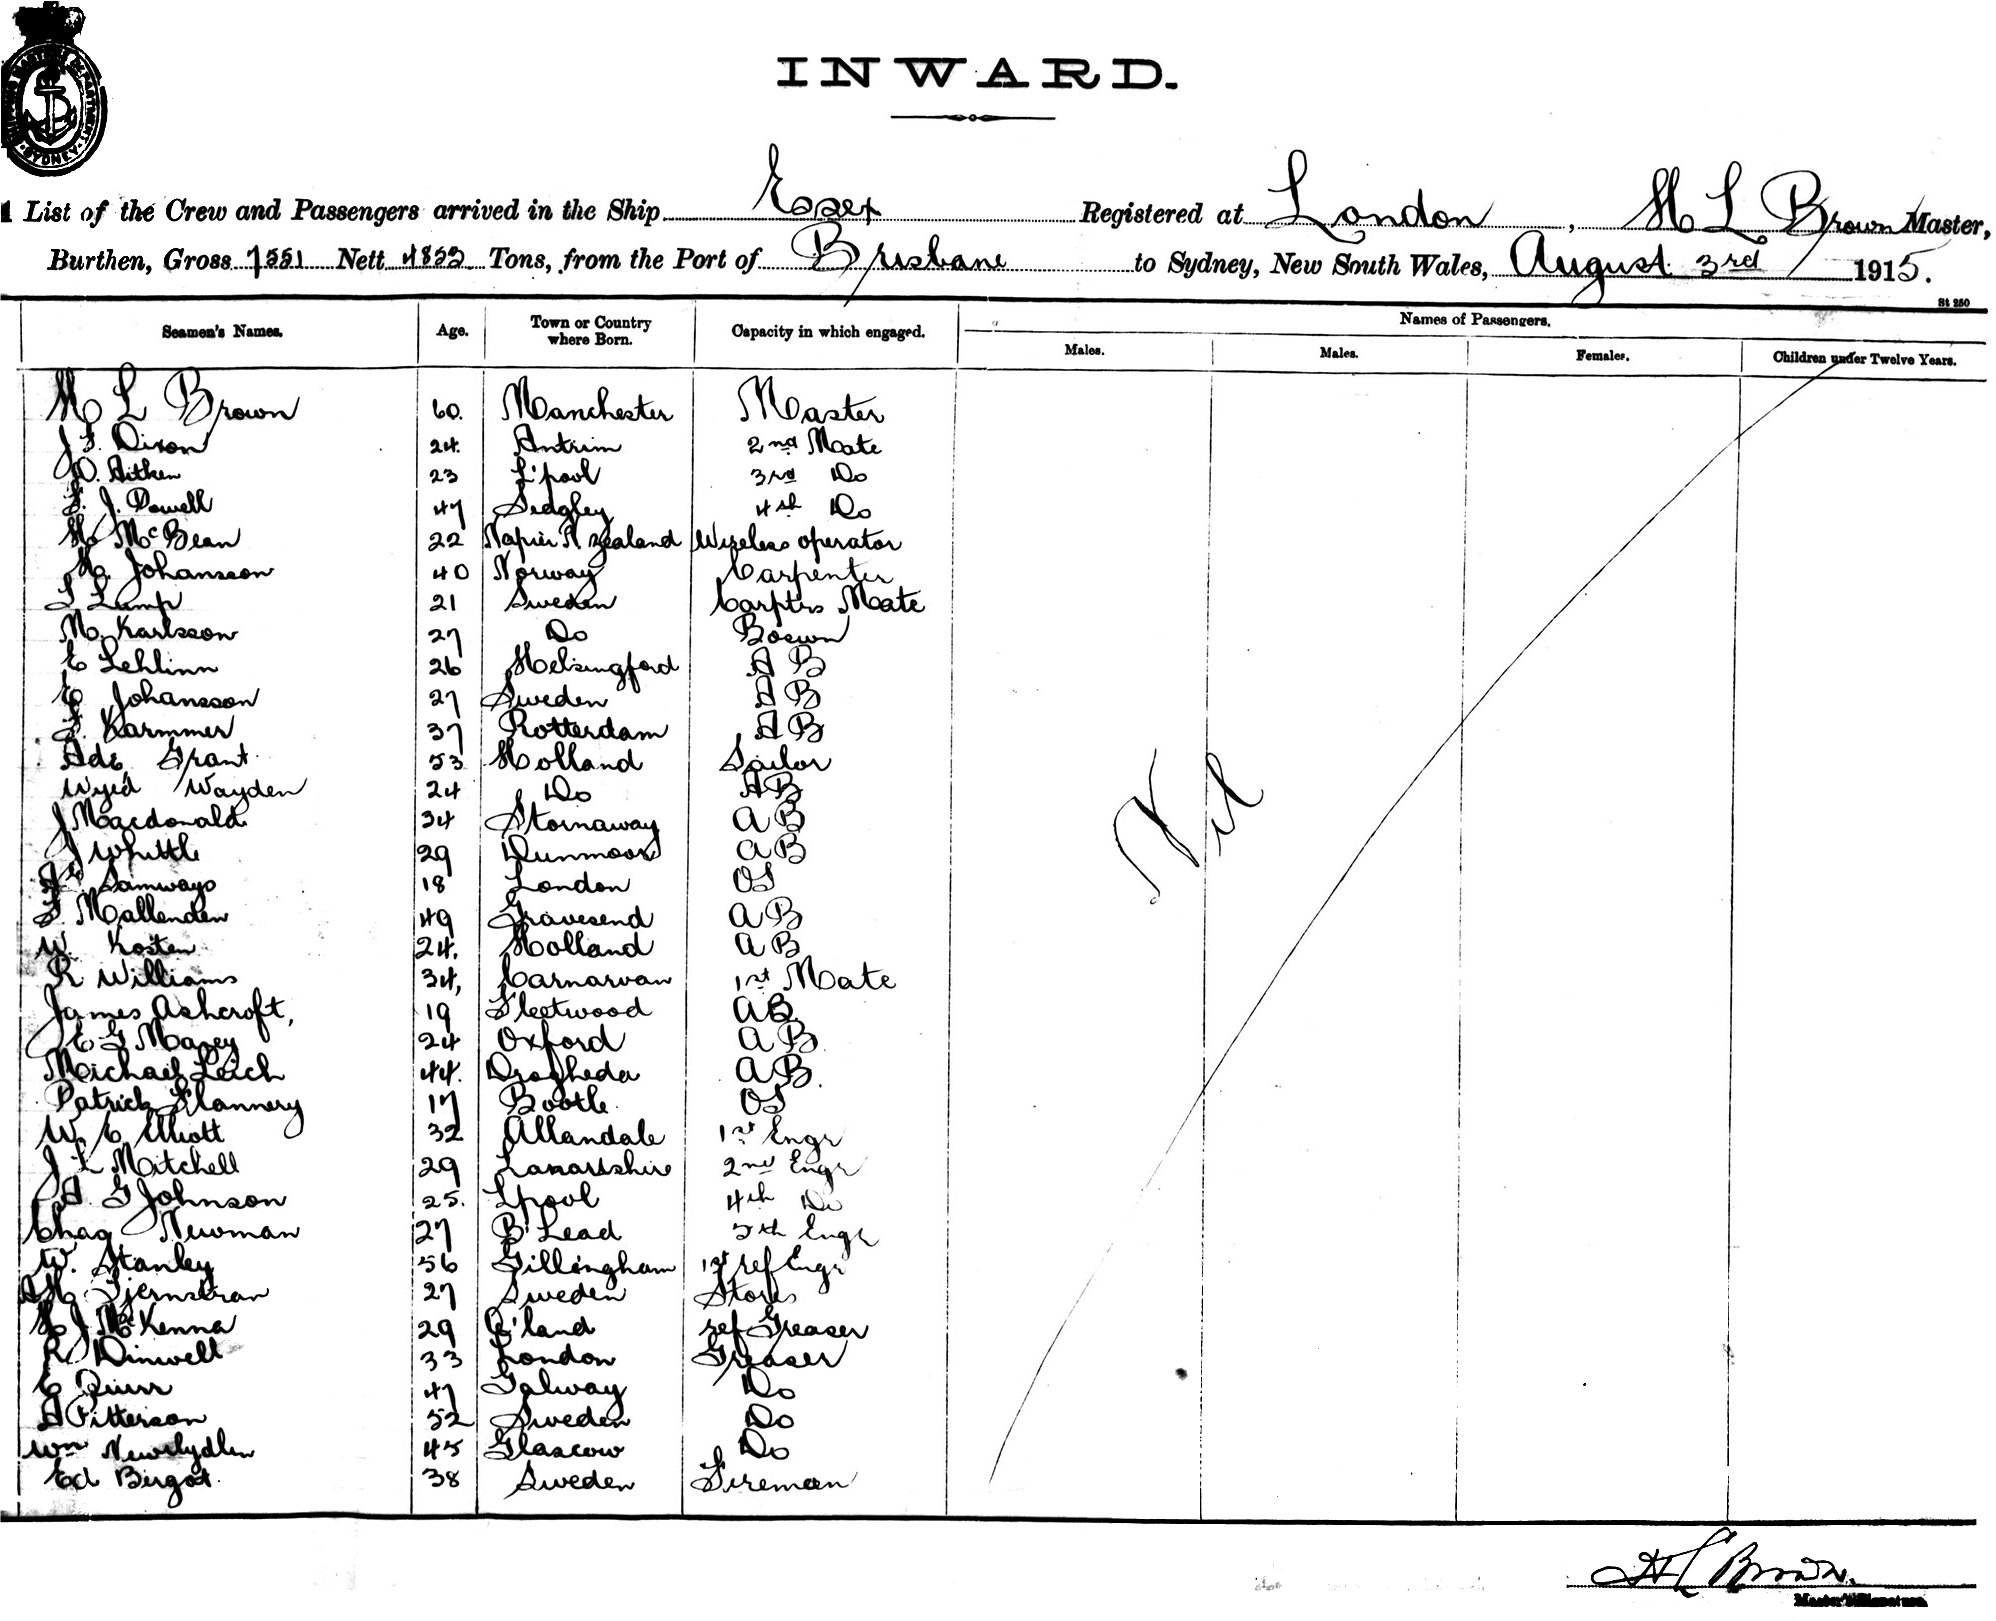 SYDNEY
INWARD.
List of the Crew and Passengers arrived in the Ship Essex Registered at London, H L Brown Master,
Burthen, Gross 7551 Nett Tons, from the Port of Brisbane to Sydney, New South Wales, August 3rd 1915.
St 250
Seamen's Names. Age. Town or Country where Born. Capacity in which engaged. Names of Passengers.
Males. Males. Females. Children under Twelve Years.
H L Brown 60. Manchester Master
J F. Dixon 24. Antrim 2nd Mate
D. Aitken 23 L'pool 3rd Do
F. J. Powell 47 Sedgley 4th Do
H McBean 22 Napier N Zealand Wireless operator
K. Johansson 40 Norway Carpenter
L Lump 21 Sweden Carptrs Mate
M. Karlsson 27 Do Boswn
E Lehlinn 26 Helsingford A B
E Johansson 27 Sweden A B
F. Karmmer 37 Rotterdam A B
Ade Grant 53 Holland Sailor
Wyid Wayden 24 Do AB
J Macdonald 34 Stornaway A B
J Whittle 29 Dunmoor A B
Samways 18 London OS
F. Mallenden 49 Gravesend A B
W. Kosten 24. Holland A B
R Williams 34, Carnarvan 1st Mate
James Ashcroft, 19 Fleetwood AB.
E G Maxey 24 Oxford A B
Michael Leich 44. Drogheda A B.
Patrick Flannery 17 Bootle OS
W. E. Elliott 32 Allandale 1st Engr
J L Mitchell 29 Lanarkshire 2nd Engr
A. G Johnson 25. Lpool 4th Do
Chas Newman 27 B'Lead 5th Engr
W. Stanley 56 Gillingham 1st ref Engr
AH Tjernstran 27 Sweden Stores
H J McKenna 29 Q'land ref Greaser
R Dinwell 33 London Greaser
E Quirr 47 Galway Do
A Pitterson 52 Sweden Do
Wm 45 Glascow Do
Ed Birgot. 38 Sweden Fireman
Nil
H L Brown.
Master's Signature.